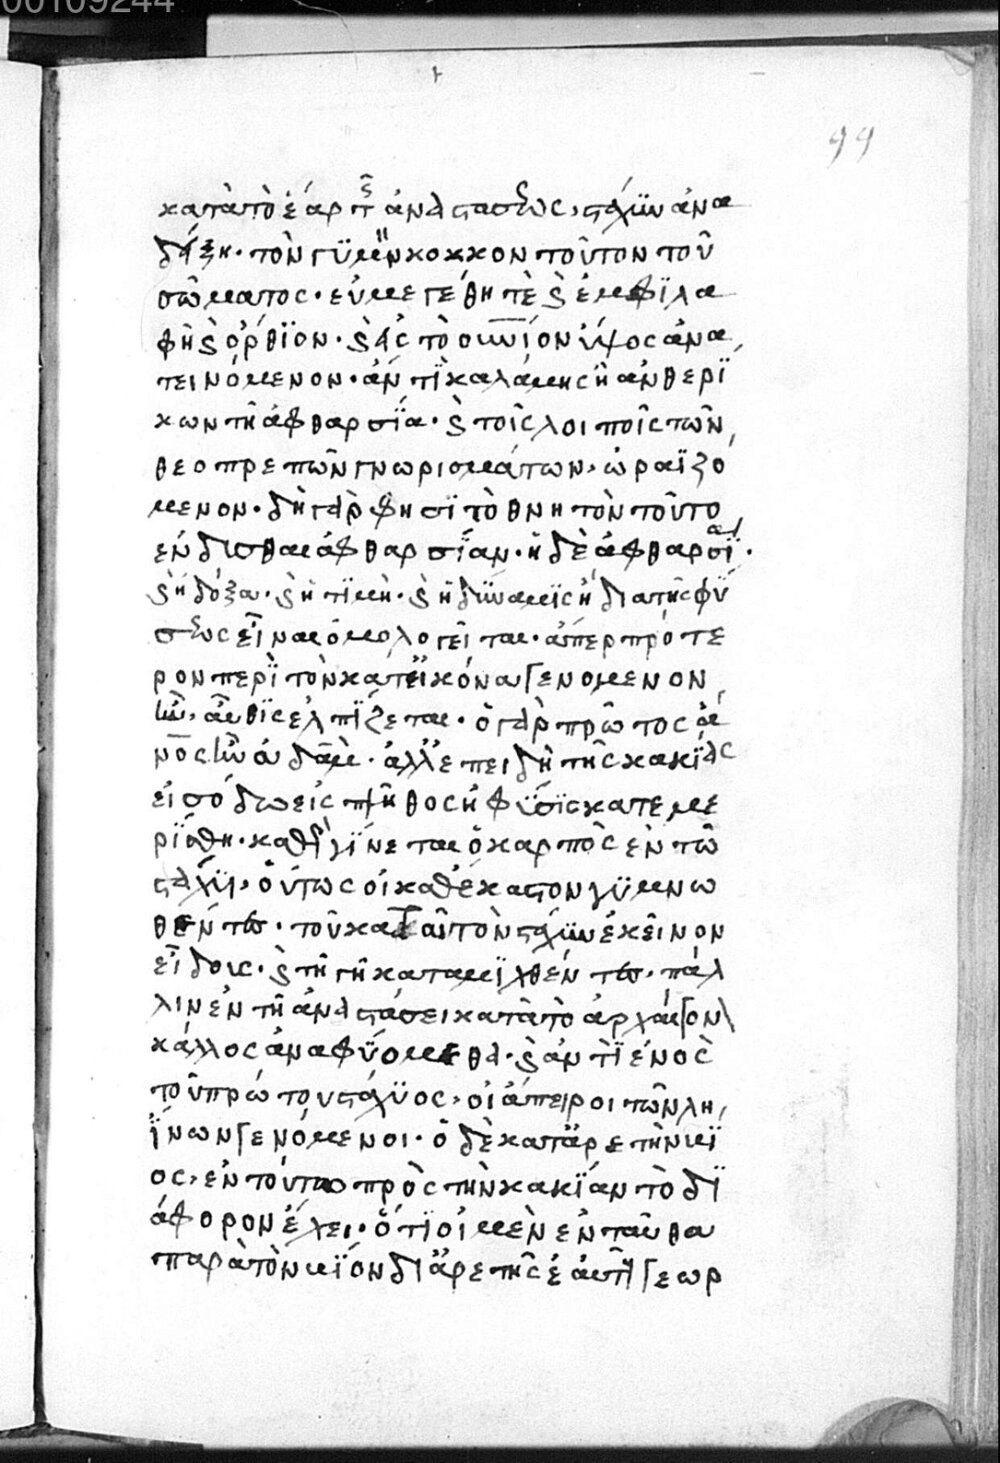 00109244
99
κατὰ τὸ ἔαρ τῆς ἀναστάσεως, στάχυν ἀνα
δείξη· τὸν γϋμνὸν κόκκον τοῦτον τοῦ
σώματος· εὐμεγέθη τὲ καὶ ἐμφϊλα
φῆ καὶ ὄρθϊον· καὶ εἰς τὸ οὐνιον ὕψος ἀνα
τεινόμενον· ἀντὶ καλάμης ἢ ἀνθερϊ
κων τῆ ἀφθαρσΐα· καὶ τοῖς λοιποῖς τῶν
θεοπρεπῶν γνωρισμάτων, ὡραϊζό
μενον· δεῖ γὰρ φησϊ τὸ θνητὸν τοῦτο
ἐνδύσασθαι ἀφθαρσΐαν· ἡ δὲ ἀφθαρσΐα·
καὶ ἡ δόξα· καὶ ἡ τϊμὴ· καὶ ἡ δϋναμϊς ἡ διὰ τῆς φϋ
σεως εἶναι ὁμολογεῖται· ἅπερ πρότε
ρον περὶ τὸν κατεἰκόνα γενόμενον
ἦν, αὖθϊς ἐλπΐζεται· ὁ γὰρ πρῶτος ἄ
νος ἦν ἀδὰμ· ἀλλ' ἐπειδὴ τῆς κακΐας
εἰσόδω εἰς πλῆθος ἡ φϋσϊς κατεμε
ρΐσθη· καθὼς γΐνεται ὁ καρπὸς ἐν τῶ
στάχϋϊ, οὕτως οἱ καθέκαστον γϋμνω
θέντες· τοῦ κατ' αὐτὸν στάχϋν ἐκεῖνον
εἴδους· καὶ τῆ γῆ καταμϊχθέντες· πάλ
λιν ἐν τῆ ἀναστάσει κατὰ τὸ ἀρχαῖον
κάλλος ἀναφϋόμεθα· καὶ ἀντὶ ἑνὸς
τοῦ πρώτου στάχϋος, οἱ ἄπειροι τῶν λη
ΐνων γενόμενοι· ὁ δὲ κατ' ἀρετὴν βΐ
ος, ἐν τούτω πρὸς τὴν κακΐαν τὸ δϊ
άφορον ἔχει· ὅτϊ οἱ μὲν ἐνταῦθα
παρὰ τὸν βΐον δι' ἀρετῆς ἑαυτοὺς γεωρ